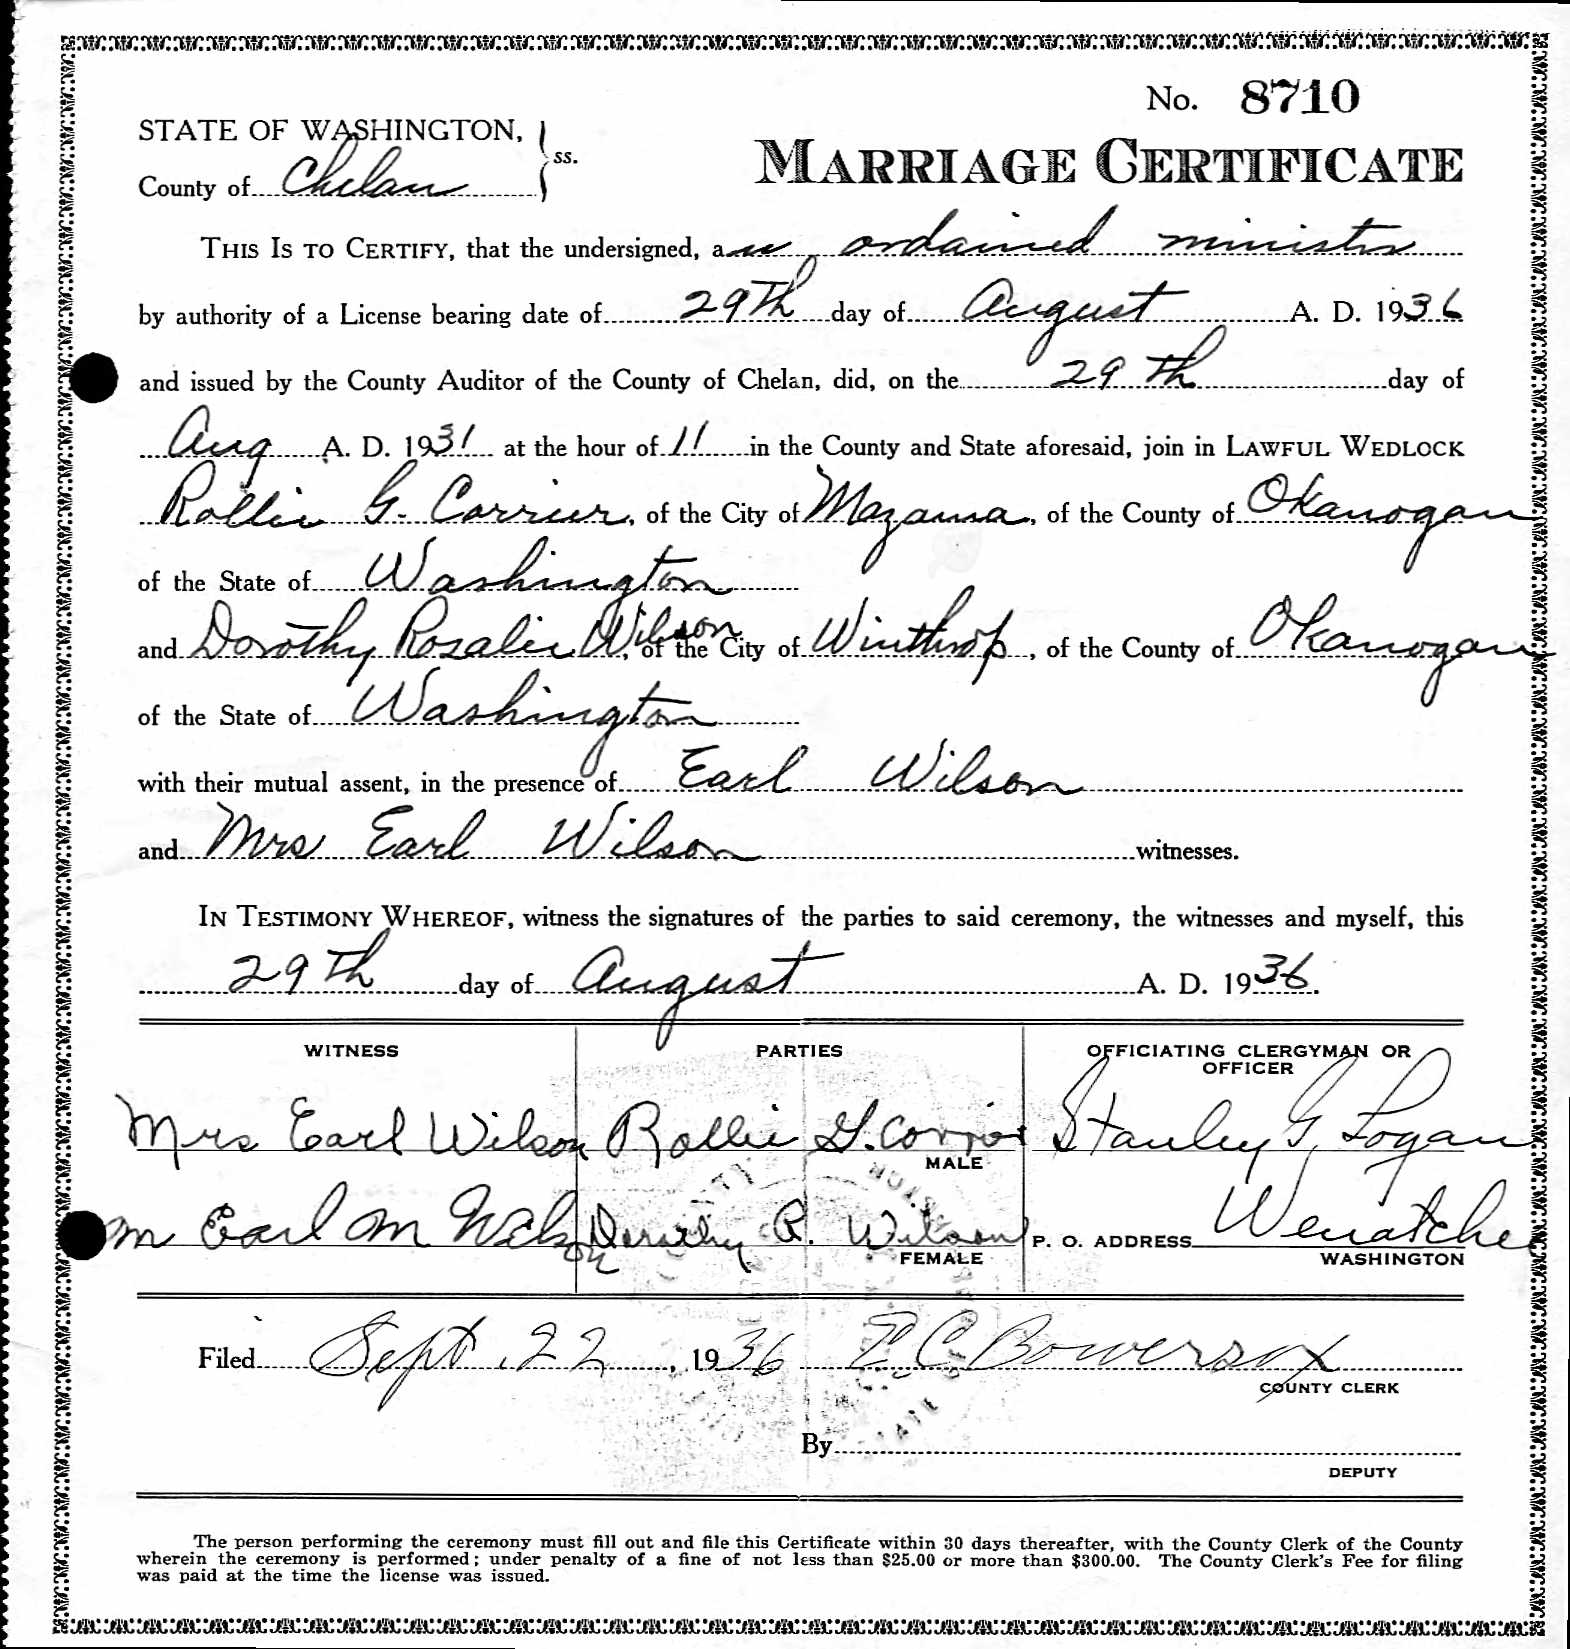 No. 8710
STATE OF WASHINGTON, } ss.
MARRIAGE CERTIFICATE
County of Chelan
THIS IS TO CERTIFY, that the undersigned, an ordained minister
by authority of a License bearing date of 29th day of August A. D. 1936
and issued by the County Auditor of the County of Chelan, did, on the 29th day of
Aug A. D. 1931 at the hour of 11 in the County and State aforesaid, join in LAWFUL WEDLOCK
Rollie G. Corrier, of the City of Mazama, of the County of Okanogan
of the State of Washington
and Dorothy Rosalie Wilson, of the City of Winthrop, of the County of Okanogan
of the State of Washington
with their mutual assent, in the presence of Earl Wilson
and Mrs Earl Wilson witnesses.
IN TESTIMONY WHEREOF, witness the signatures of the parties to said ceremony, the witnesses and myself, this
29th day of August A. D. 1936.
WITNESS PARTIES OFFICIATING CLERGYMAN OR
OFFICER
Mrs Earl Wilson Rollie G. Corrier Stanley G. Logan
MALE
m Earl M Wilson Dorothy R. Wilson P. O. ADDRESS Wenatchee
FEMALE WASHINGTON
Filed Sept. 22, 1936 E C Bowersox
COUNTY CLERK
By
DEPUTY
The person performing the ceremony must fill out and file this Certificate within 30 days thereafter, with the County Clerk of the County
wherein the ceremony is performed; under penalty of a fine of not less than $25.00 or more than $300.00. The County Clerk's Fee for filing
was paid at the time the license was issued.